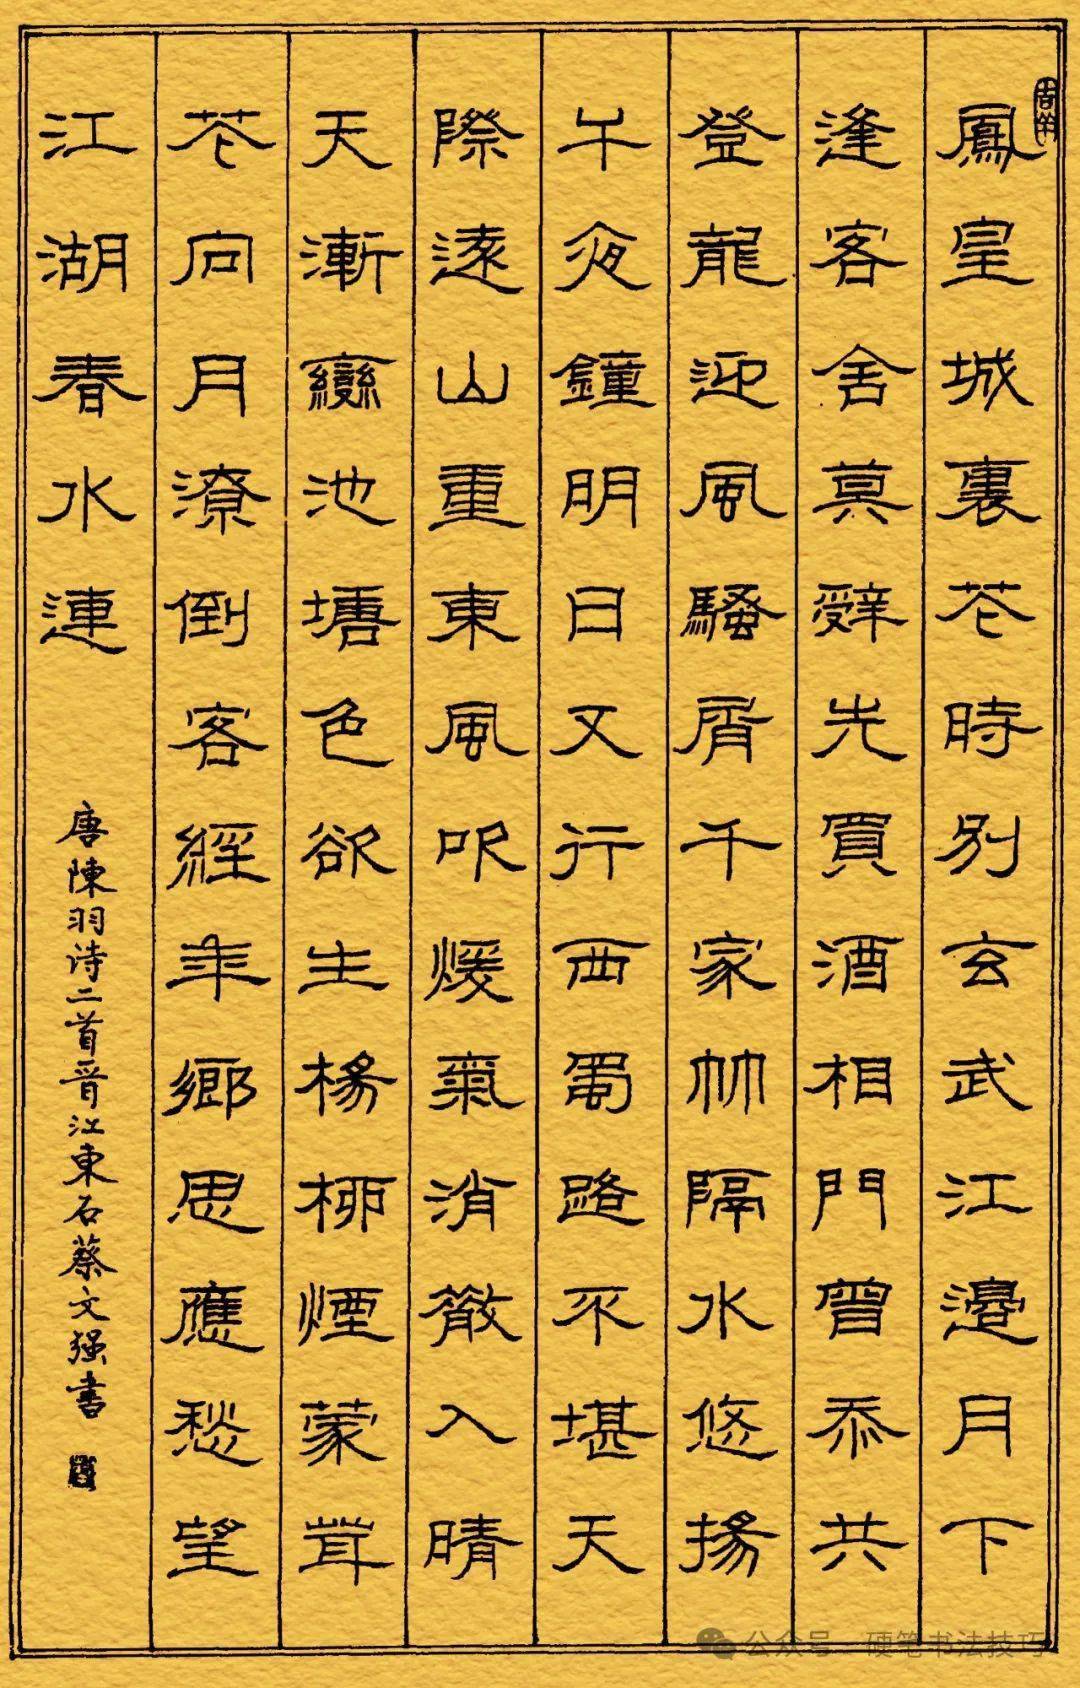 鳳皇城裏花時別玄武江邊月下
逢客舍莫辭先買酒相門曾忝共
登龍迎風騷屑千家竹隔水悠揚
午夜鐘明日又行西蜀路不堪天
際遠山重東風吹煖氣消散入晴
天漸變池塘色欲生楊柳煙蒙茸
花向月潦倒客經年鄉思應愁望
江湖春水連
唐陳羽诗二首晋江東石蔡文强書
公众号 · 硬笔书法技巧